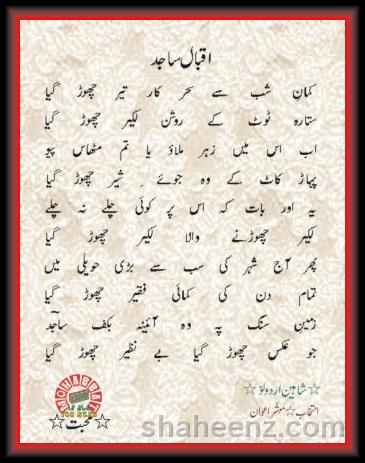 اقبال ساجد
کمانِ شب سے سحر کار تیر چھوڑ گیا
ستارہ ٹوٹ کے روشن لکیر چھوڑ گیا
اب اس میں زہر ملاؤ یا تم مٹھاس پیو
پہاڑ کاٹ کے وہ جوئے شیر چھوڑ گیا
یہ اور بات کہ اس پر کوئی چلے نہ چلے
لکیر چھوڑنے والا لکیر چھوڑ گیا
پھر آج شہر کی سب سے بڑی حویلی میں
تمام دن کی کمائی فقیر چھوڑ گیا
زمینِ سنگ پہ وہ آئینہ بکف ساجدؔ
جو عکس چھوڑ گیا بے نظیر چھوڑ گیا
☆شاہین اردو لو☆
انتخاب☆مبشر اعوان
MOHABBAT
☆محبت☆
shaheenz.com